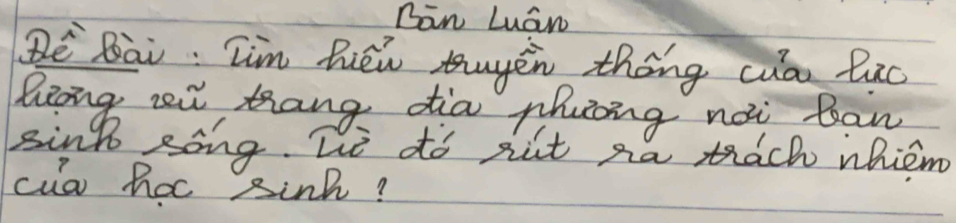 Bàn Luận
Đề Bài : Tìm hiểu truyền thống của lực
lượng vũ trang địa phương nơi bạn
sinh sống. Từ đó rút ra trách nhiệm
của học sinh ?